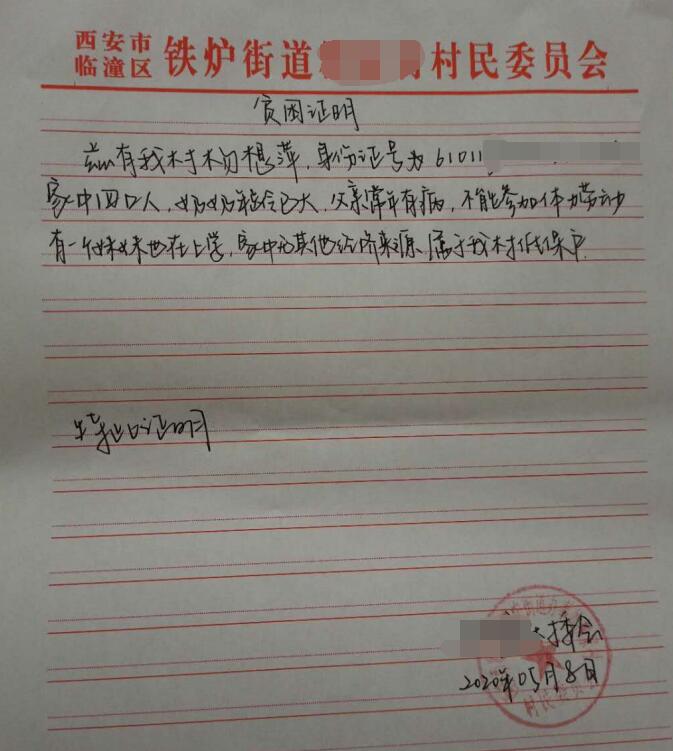 西安市
临潼区 铁炉街道 村民委员会
贫困证明
兹有我村村民 想萍，身份证号为 61011
家中四口人，奶奶年龄已大，父亲常年有病，不能参加体力劳动
有一个妹妹也在上学，家中无其他经济来源 属于我村低保户
特此证明
村委会
2020年05月8日
街道办
村民委员会